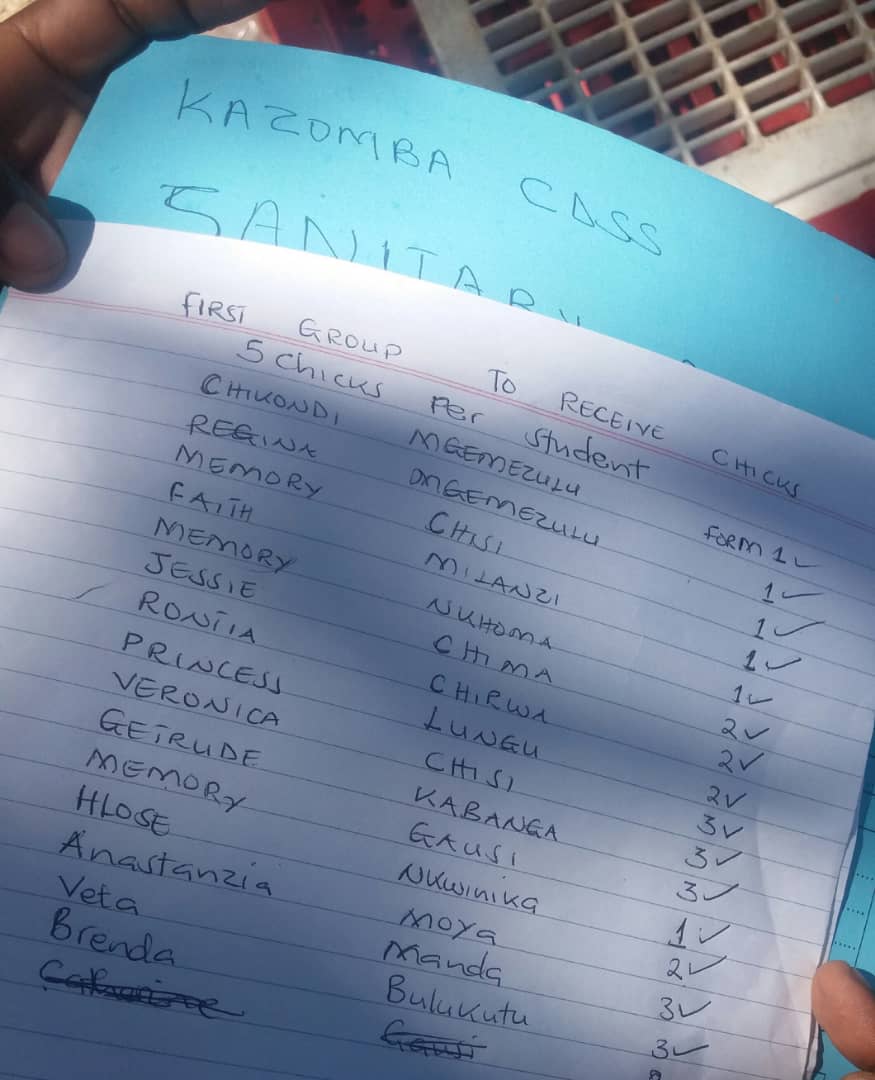 KAZOMBA CDSS
SANITARY
FIRST GROUP TO RECEIVE CHICKS
5 chicks per student
CHIKONDI MGEMEZULU FORM 1 ✓
REGINA MGEMEZULU 1 ✓
MEMORY CHISI 1 ✓
FAITH MILANZI 1 ✓
MEMORY NKHOMA 1 ✓
JESSIE CHIMA 2 ✓
CHIRWA 2 ✓
PRINCESS LUNGU 2 ✓
VERONICA CHISI 3 ✓
GETRUDE KABANGA 3 ✓
MEMORY GAUSI 3 ✓
HLOSE Nkwinika 1 ✓
Anastanzia Moya 2 ✓
Veta Manda 3 ✓
Brenda Bulukutu 3 ✓
Gausi